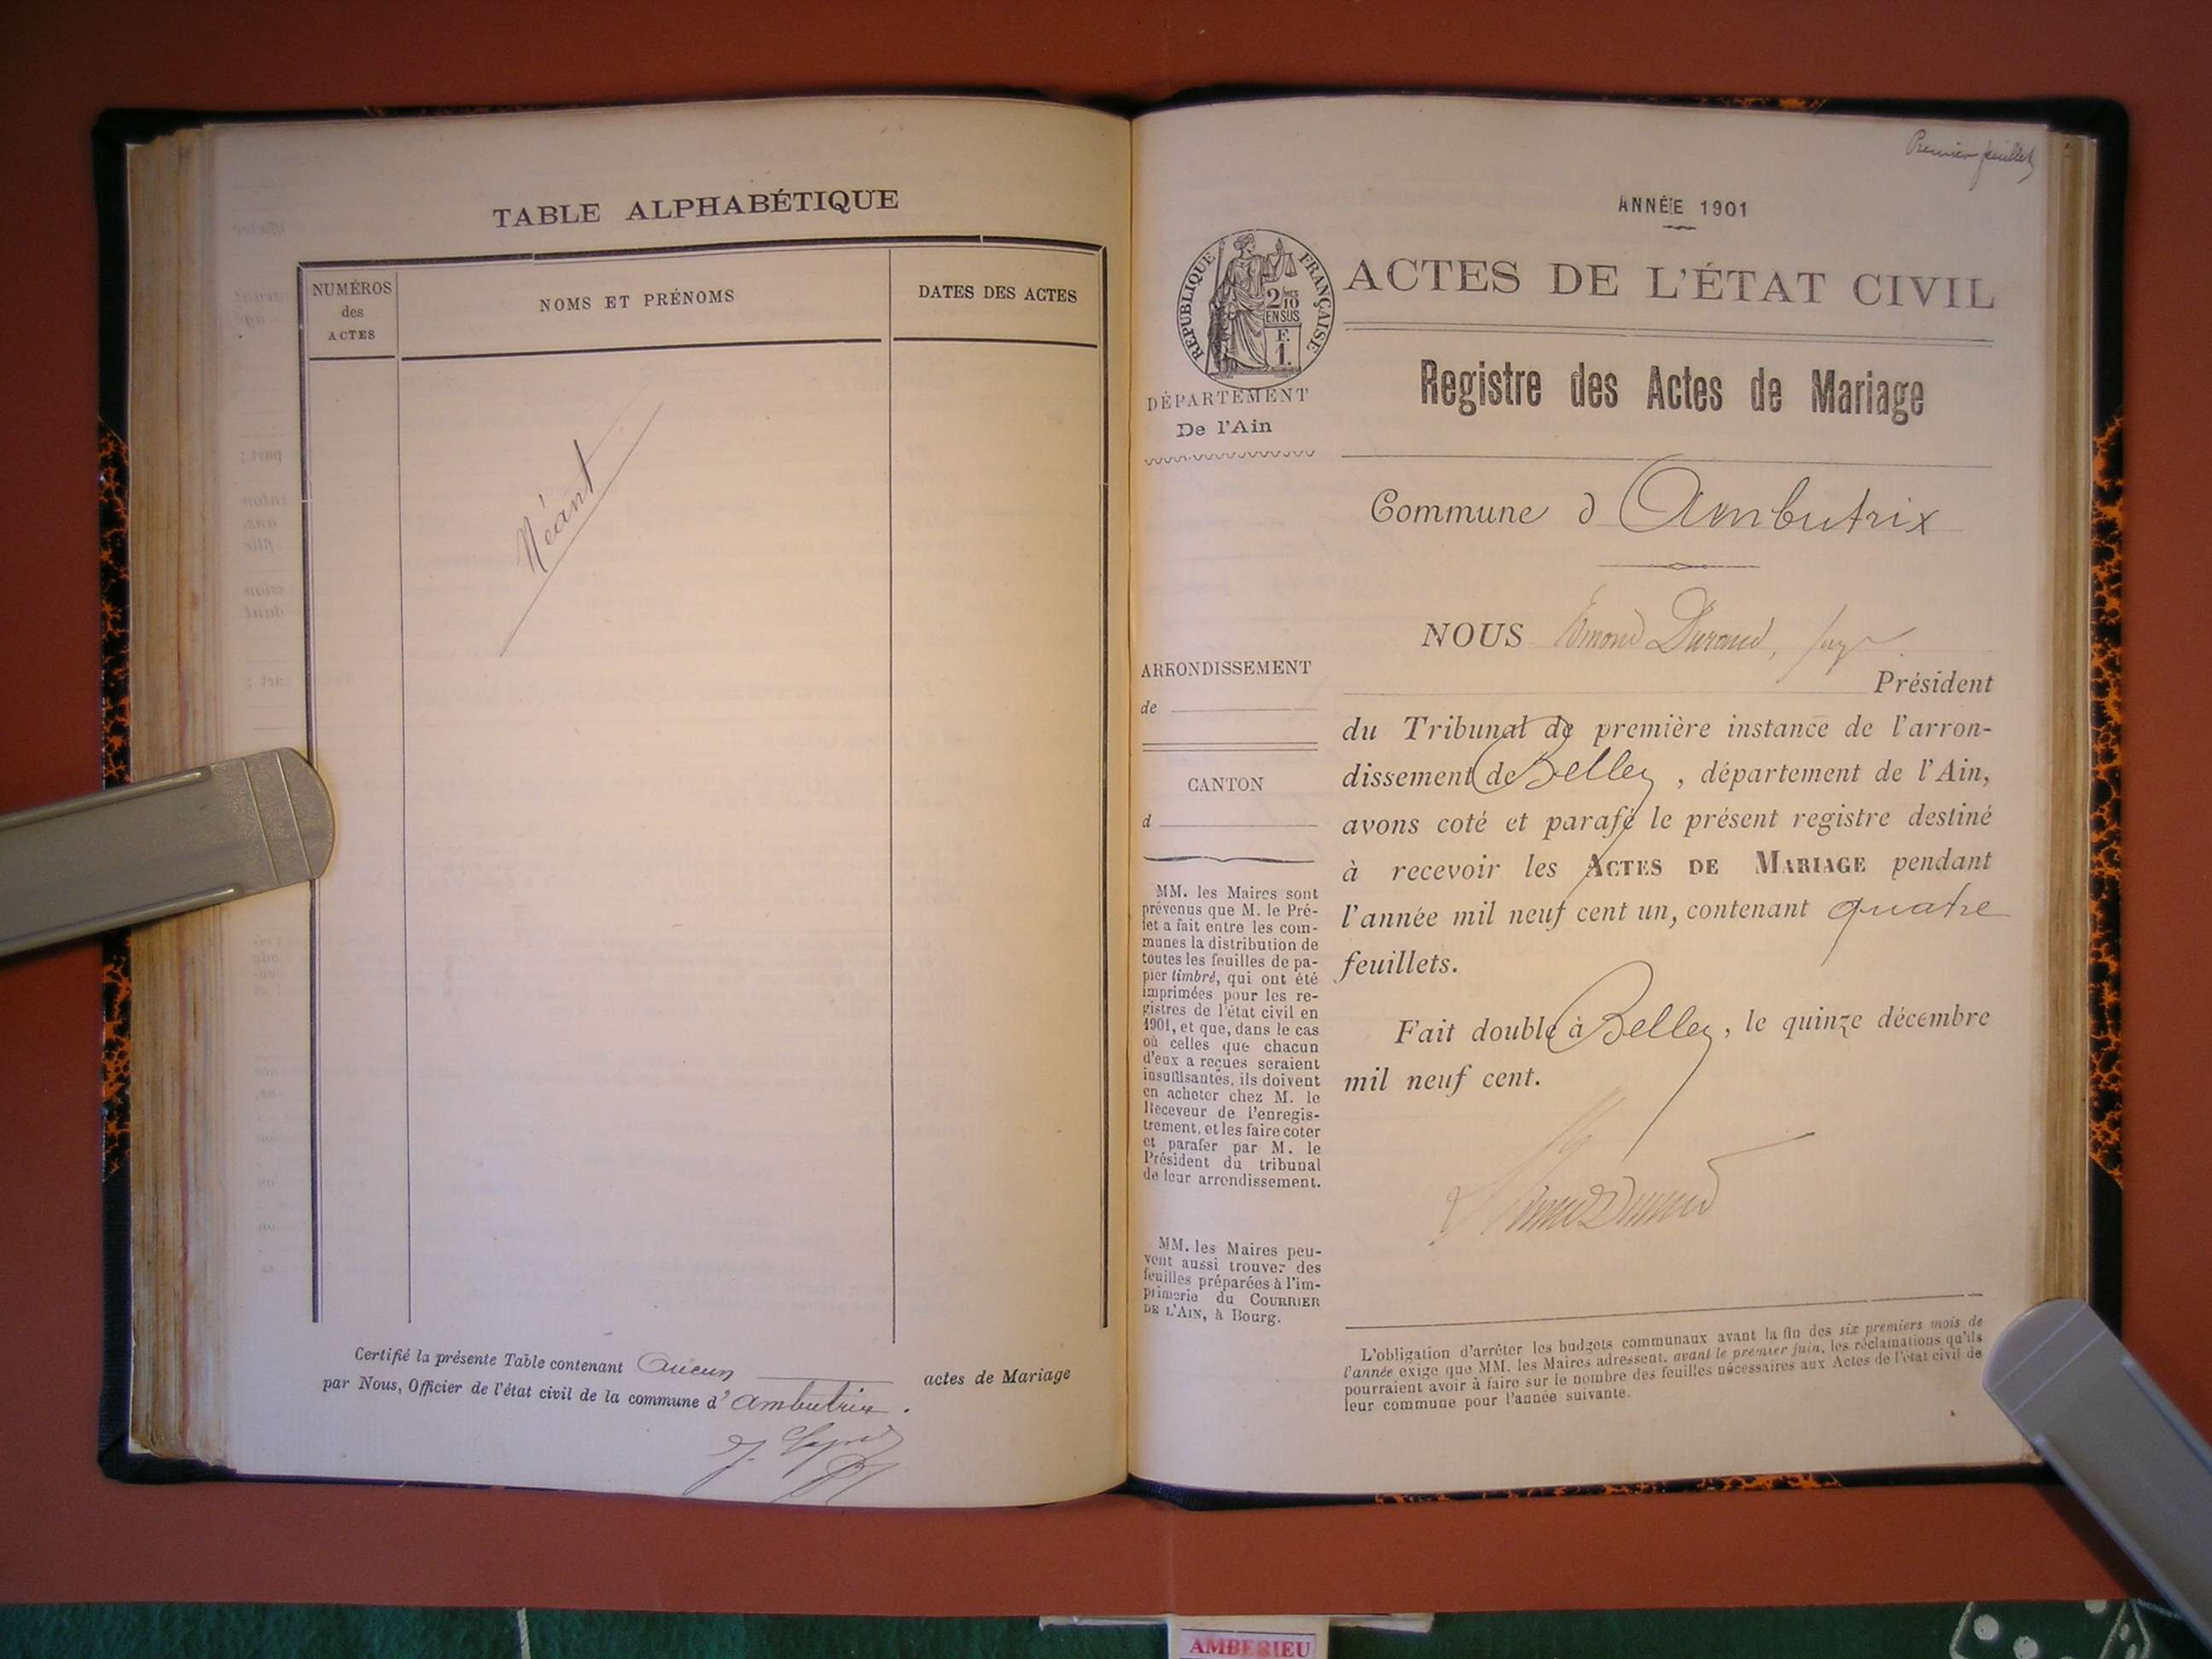 TABLE ALPHABÉTIQUE
NUMÉROS
des
ACTES
NOMS ET PRÉNOMS
DATES DES ACTES
Néant
Certifié la présente Table contenant Aucun actes de Mariage
par Nous, Officier de l'état civil de la commune d'Ambutrix.
Premier feuillet
ANNÉE 1901
RÉPUBLIQUE FRANÇAISE
2/10 MES
EN SUS
F.
1.
DÉPARTEMENT
De l'Ain
ARRONDISSEMENT
de
CANTON
d
MM. les Maires sont
prévenus que M. le Pré-
fet a fait entre les com-
munes la distribution de
toutes les feuilles de pa-
pier timbré, qui ont été
imprimées pour les re-
gistres de l'état civil en
1901, et que, dans le cas
où celles que chacun
d'eux a reçues seraient
insuffisantes, ils doivent
en acheter chez M. le
Receveur de l'enregis-
trement, et les faire coter
et parafer par M. le
Président du tribunal
de leur arrondissement.
MM. les Maires peu-
vent aussi trouver des
feuilles préparées à l'im-
primerie du COURRIER
DE L'AIN, à Bourg.
ACTES DE L'ÉTAT CIVIL
Registre des Actes de Mariage
Commune d Ambutrix
NOUS Edmond Durand, juge
Président
du Tribunal de première instance de l'arron-
dissement de Belley, département de l'Ain,
avons coté et parafé le présent registre destiné
à recevoir les ACTES DE MARIAGE pendant
l'année mil neuf cent un, contenant quatre
feuillets.
Fait double à Belley, le quinze décembre
mil neuf cent.
L'obligation d'arrêter les budgets communaux avant la fin des six premiers mois de
l'année exige que MM. les Maires adressent, avant le premier juin, les réclamations qu'ils
pourraient avoir à faire sur le nombre des feuilles nécessaires aux Actes de l'état civil de
leur commune pour l'année suivante.
AMBERIEU